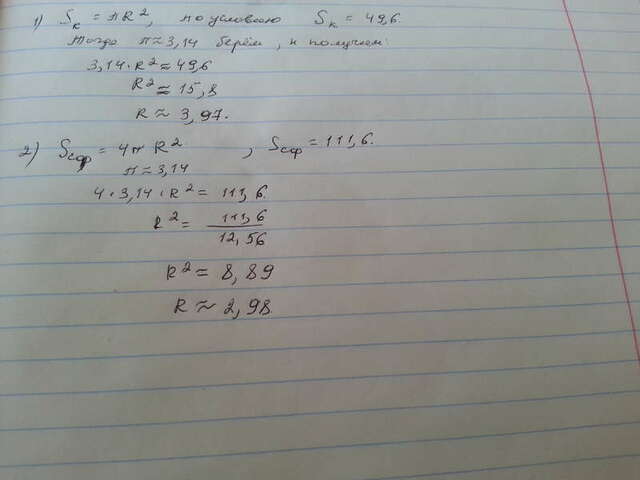 1) Sк = πR², по условию Sк = 49,6.
Тогда π ≈ 3,14 берём, и получаем:
3,14 · R² ≈ 49,6
R² ≈ 15,8
R ≈ 3,97.
2) Sсф = 4π R² , Sсф = 111,6.
π ≈ 3,14
4 · 3,14 · R² = 111,6.
R² = 111,6
12,56
R² = 8,89
R ≈ 2,98.